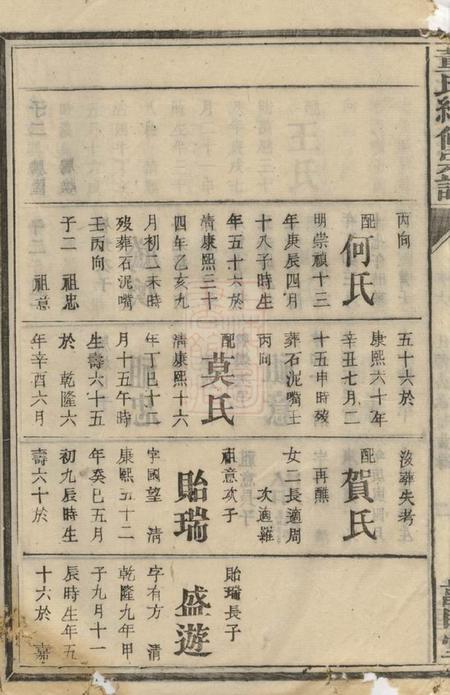 丙向
配 何氏
明崇禎十三
年庚辰四月
十八子時生
年五十六於
清康熙三十
四年乙亥九
月初二未時
殁葬石泥嘴
壬丙向
子二 祖忠
祖意
五十六於
康熙六十年
辛丑七月二
十五申時殁
葬石泥嘴士
丙向
配 莫氏
清康熙十六
年丁巳十一
月十五午時
生壽六十五
於 乾隆六
年辛酉六月
沒葬失考
配 賀氏
再醮
女二長適周
次適羅
祖意次子
貽瑞
字國望 清
康熙五十二
年癸巳五月
初九辰時生
壽六十於
貽瑞長子
盛遊
字有方 清
乾隆九年甲
子九月十一
辰時生年五
十六於 嘉